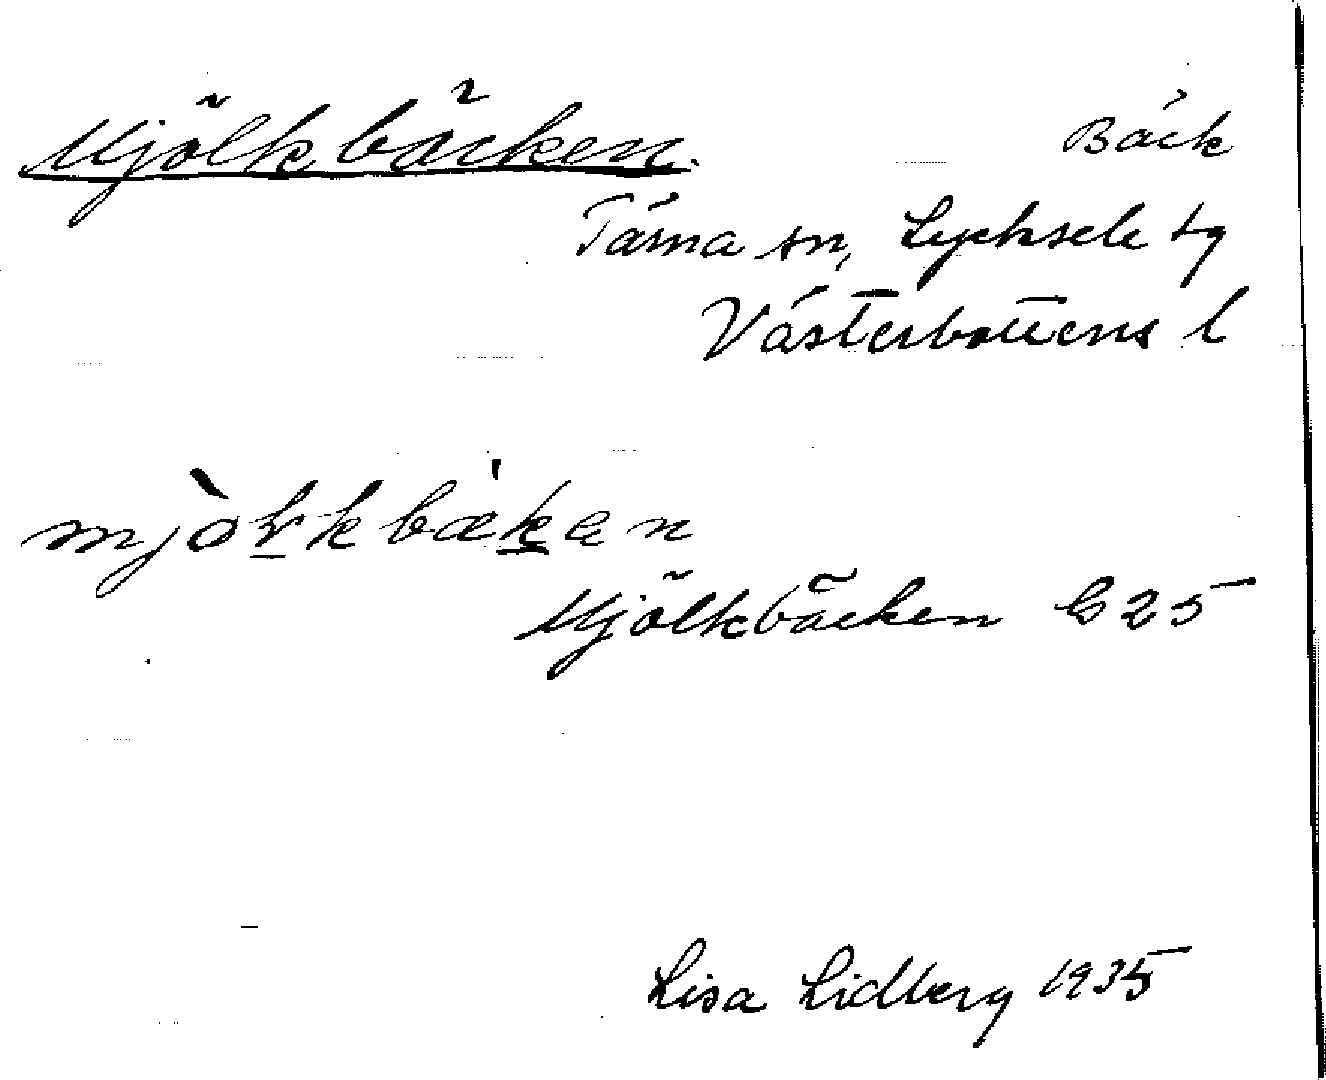 Mjölkbäcken. Bäck
Tärna sn, Lycksele tg
Västerbottens l
Mjölkbäcken G 25
Lisa Lidberg 1935